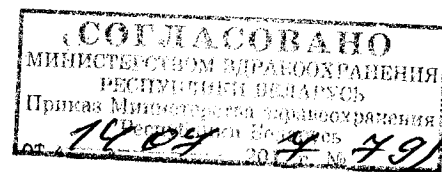 СОГЛАСОВАНО
МИНИСТЕРСТВОМ ЗДРАВООХРАНЕНИЯ
РЕСПУБЛИКИ БЕЛАРУСЬ
Приказ Министерства здравоохранения
Республики Беларусь
от 14 07 20 г. № 791